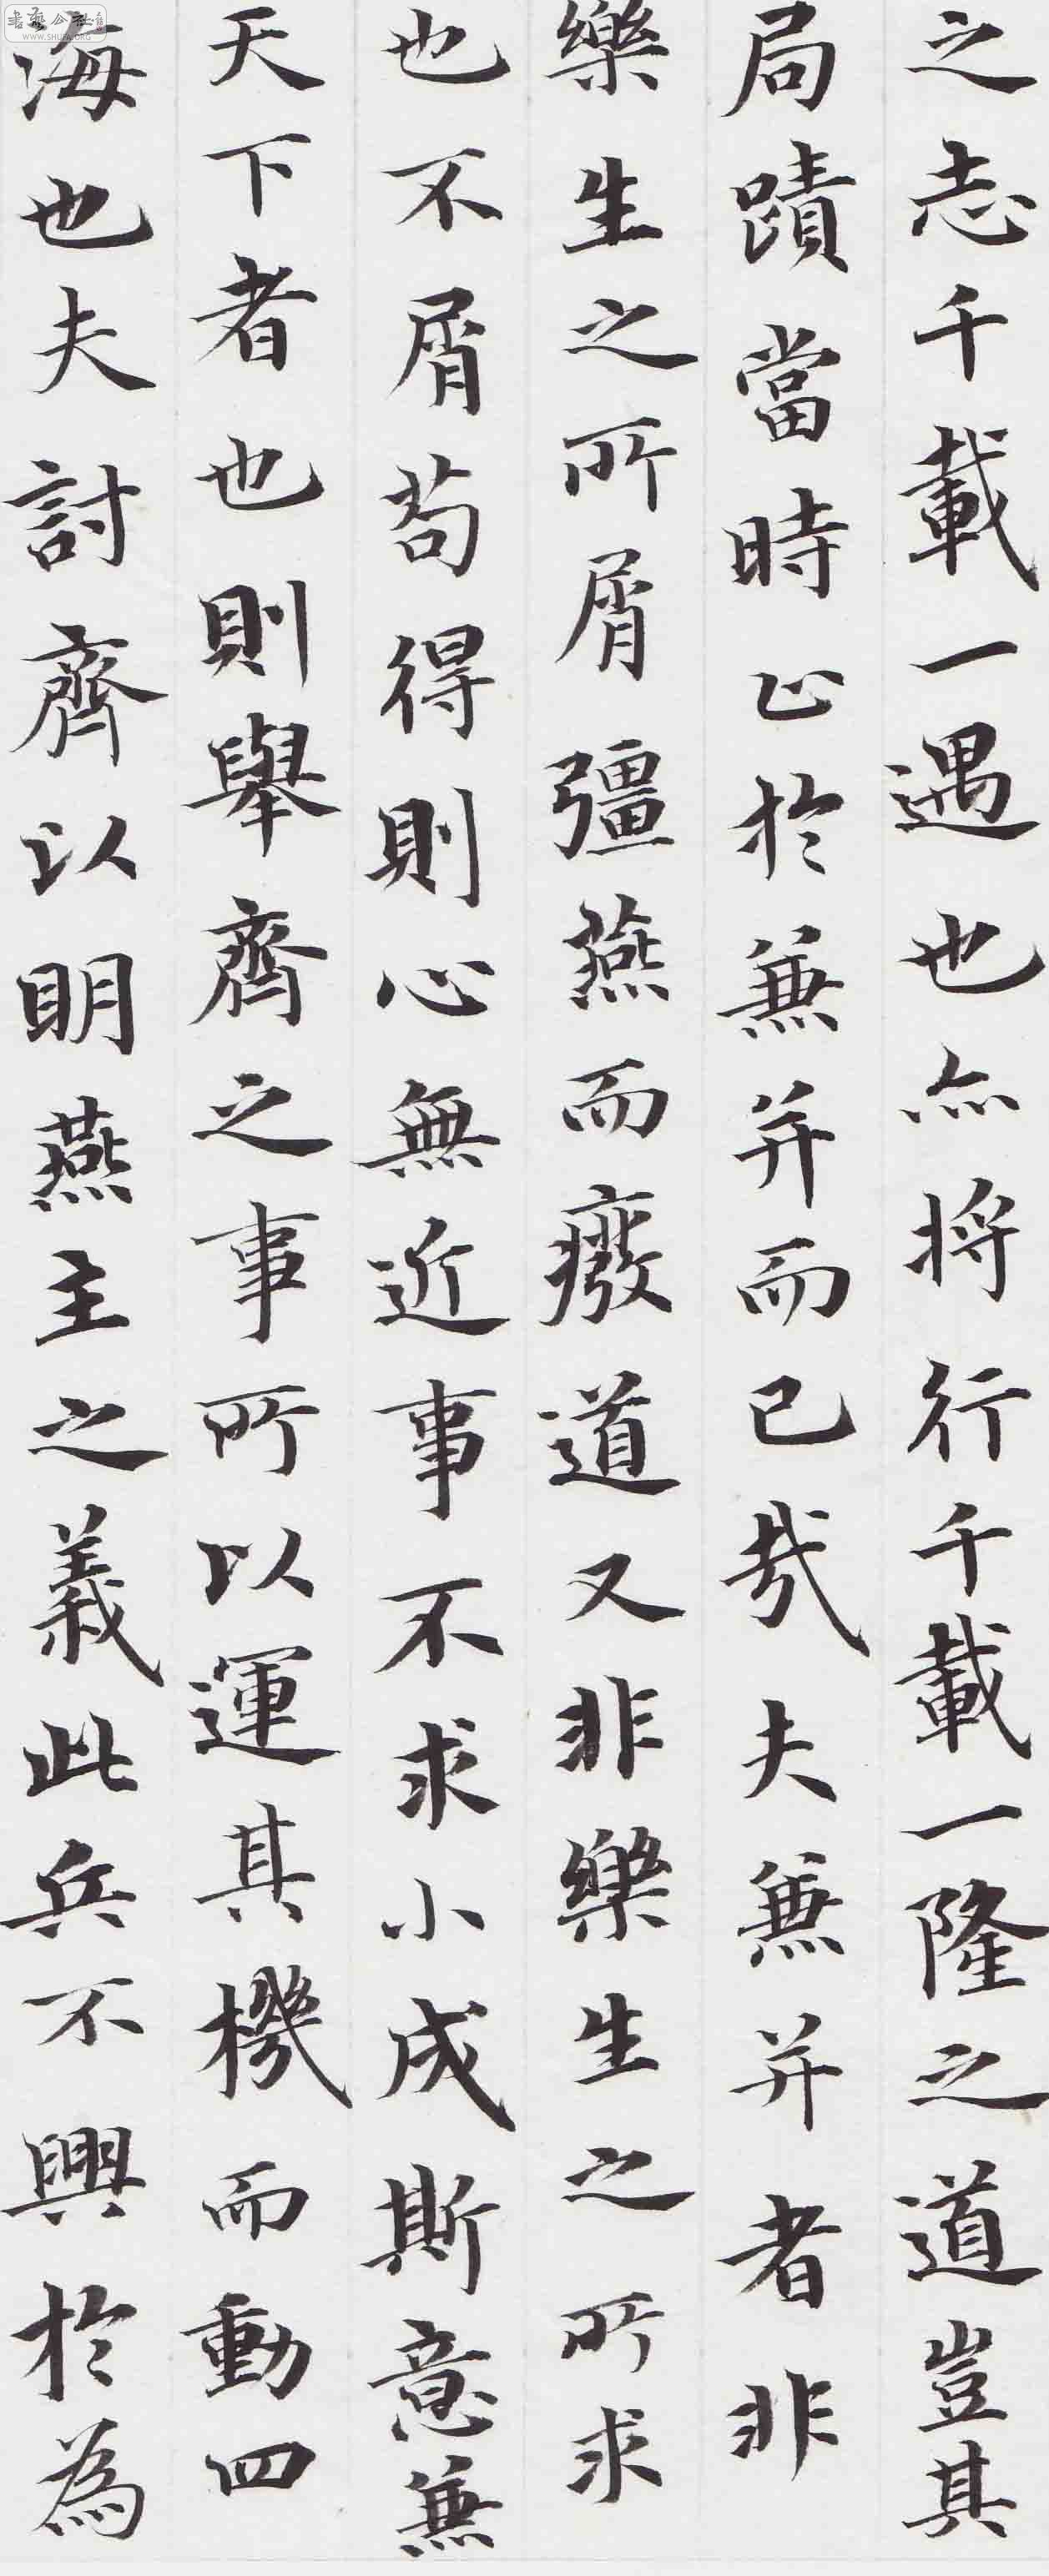 之志千載一遇也亦將行千載一隆之道豈其
局蹟當時止於兼并而已哉夫兼并者非
樂生之所屑彊燕而癈道又非樂生之所求
也不屑苟得則心無近事不求小成斯意兼
天下者也則舉齊之事所以運其機而動四
海也夫討齊以明燕主之義此兵不興於為
書藝公社
WWW.SHUFA.ORG